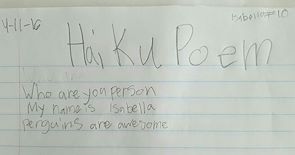 4-11-16
Isabella #10
Haiku Poem
Who are you person
My name is Isabella
Penguins are awesome